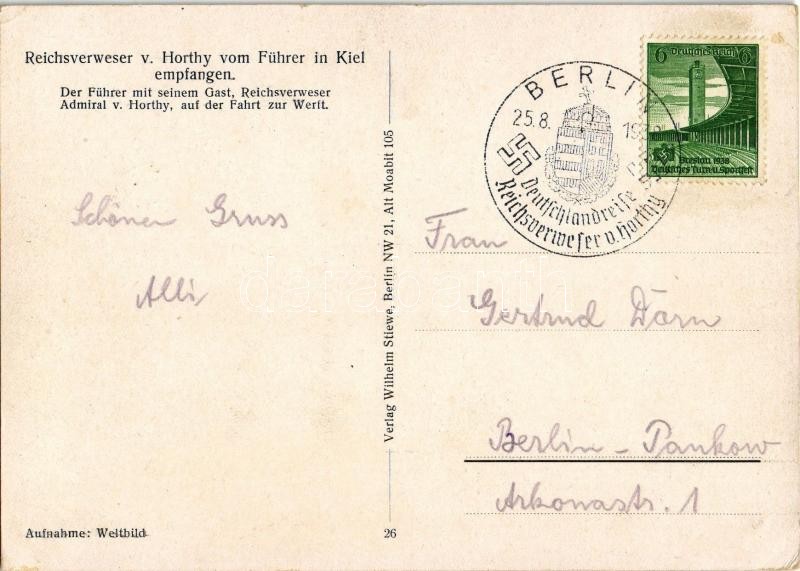 Reichsverweser v. Horthy vom Führer in Kiel
empfangen.
Der Führer mit seinem Gast, Reichsverweser
Admiral v. Horthy, auf der Fahrt zur Werft.
Schöner Gruss
Alli
Aufnahme: Weltbild
Verlag Wilhelm Stiewe, Berlin NW 21, Alt Moabit 105
26
BERLIN
25.8.
Deutschlandreise des
Reichsverweser v. Horthy
6 Deutsches Reich 6
Breslau 1938
Deutsches Turn u. Sportfest
Frau
Gertrud Dörn
Berlin-Pankow
Arkonastr. 1